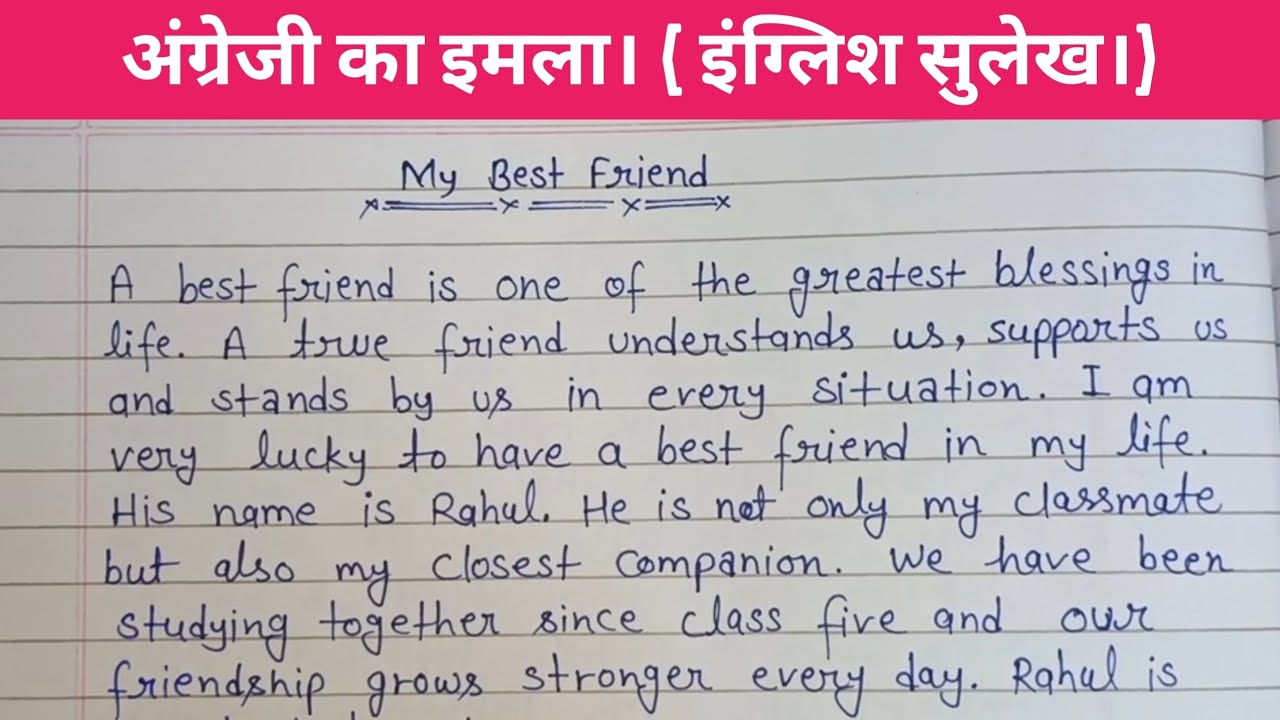 अंग्रेजी का इमला। ( इंग्लिश सुलेख।)
My Best Friend
A best friend is one of the greatest blessings in
life. A true friend understands us, supports us
and stands by us in every situation. I am
very lucky to have a best friend in my life.
His name is Rahul. He is not only my classmate
but also my closest companion. We have been
studying together since class five and our
friendship grows stronger every day. Rahul is